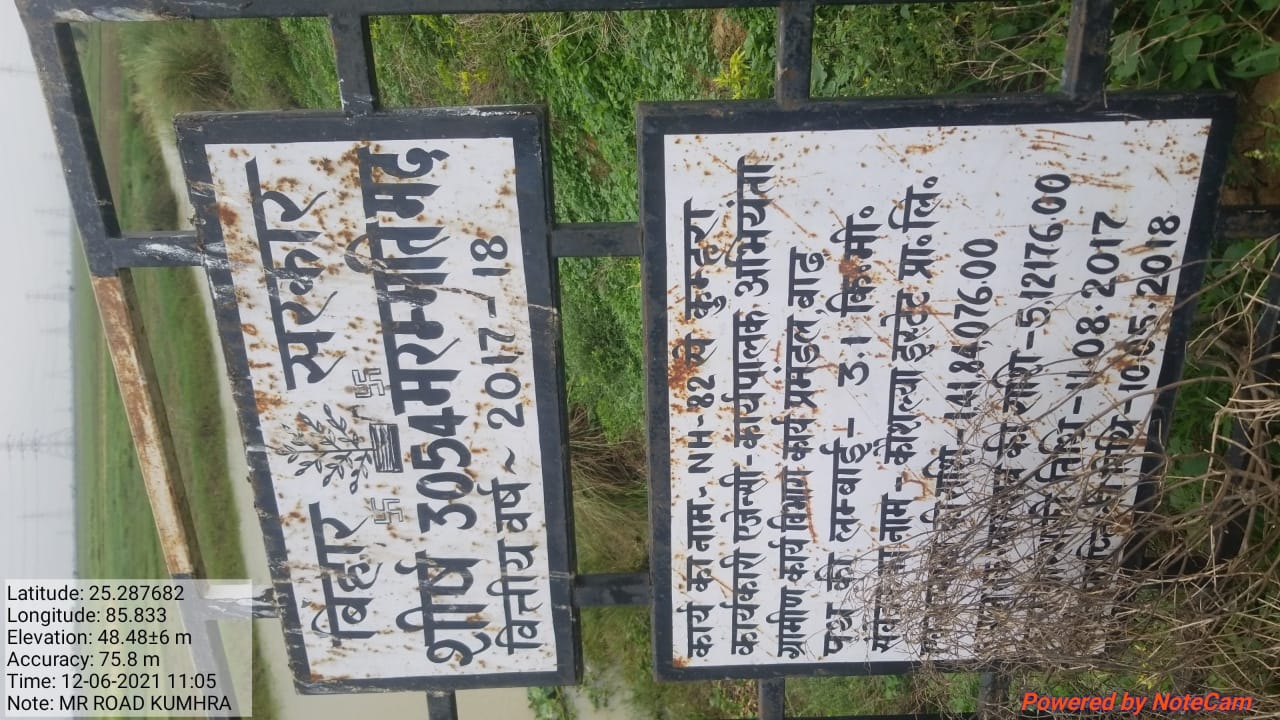 बिहार सरकार
शीर्ष 3054 मरम्मतिमद
वित्तीय वर्ष ~ 2017-18
कार्य का नाम- NH-82 से कुम्हरा
कार्यकारी एजेन्सी-कार्यपालक अभियंता
ग्रामीण कार्य विभाग कार्य प्रमंडल, बाढ़
पथ की लम्बाई- 3.1 कि.मी.
नाम - कौशल्या इस्टेट प्रा. लि.
राशि-141 84,076.00
की राशि-5,12176.00
तिथि-11.08.2017
तिथि-10.05.2018
Latitude: 25.287682
Longitude: 85.833
Elevation: 48.48±6 m
Accuracy: 75.8 m
Time: 12-06-2021 11:05
Note: MR ROAD KUMHRA
Powered by NoteCam